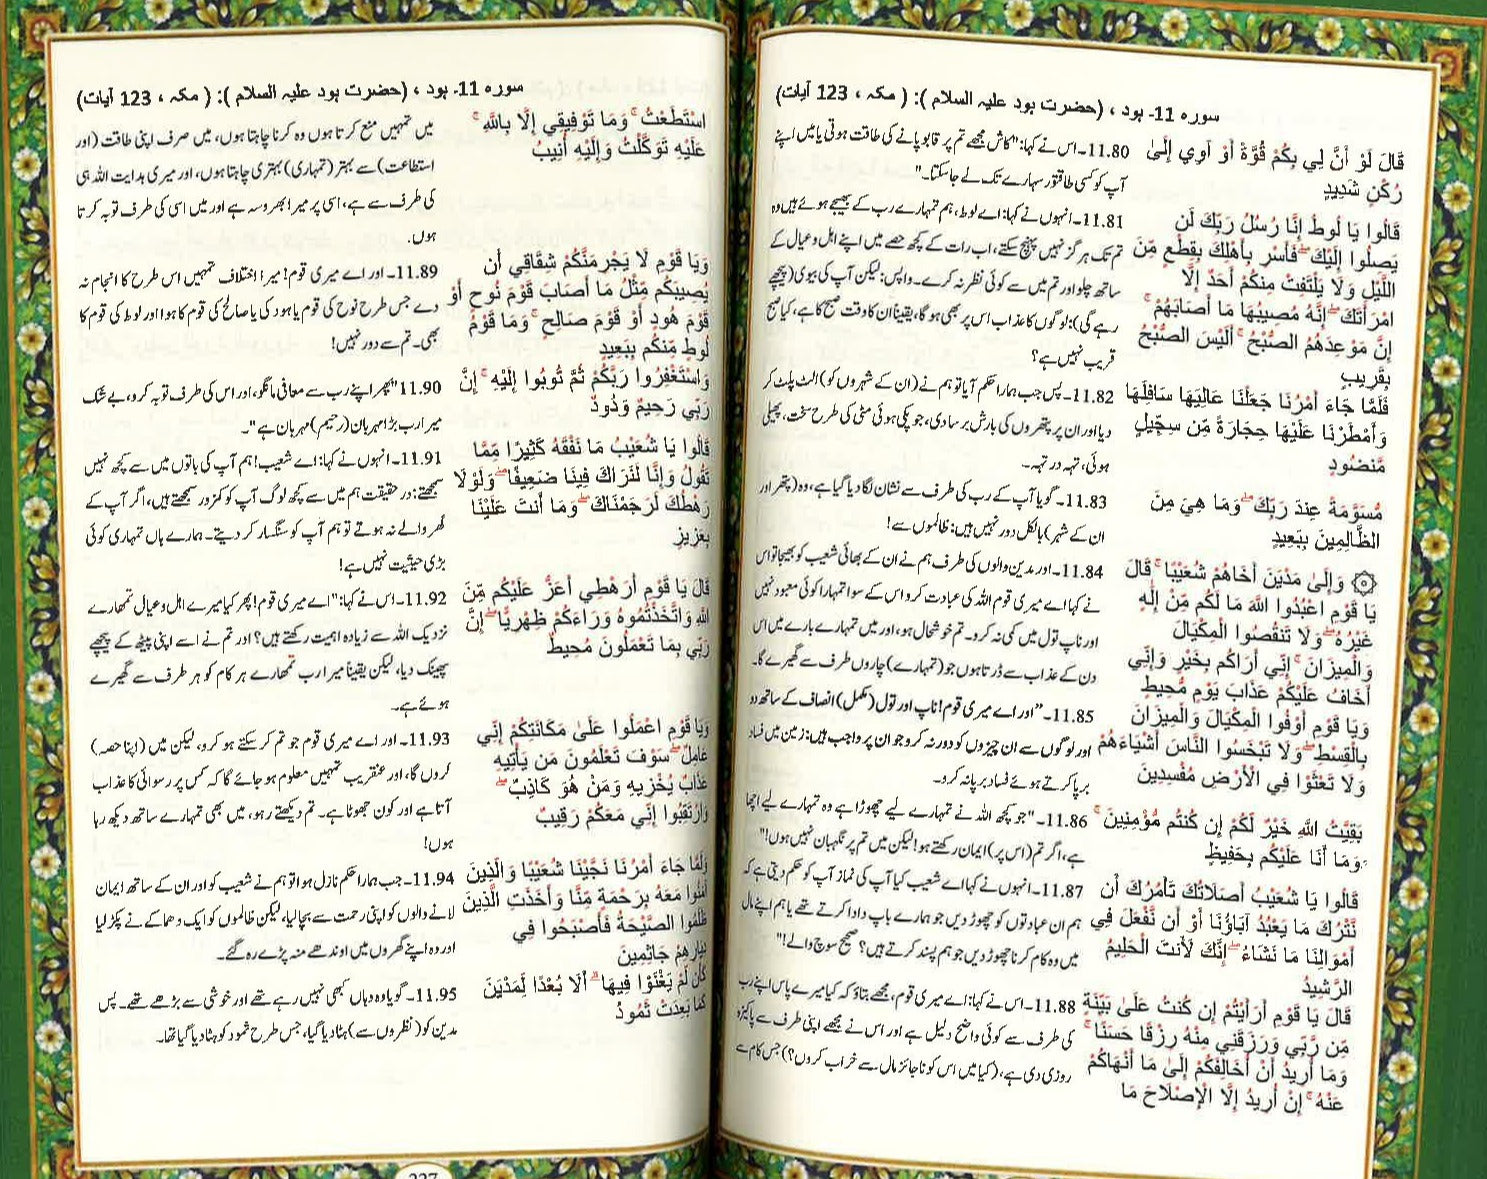 سورہ 11۔ ہود ، (حضرت ہود علیہ السلام ): ( مکہ ، 123 آیات)
قَالَ لَوْ أَنَّ لِي بِكُمْ قُوَّةً أَوْ آوِي إِلَىٰ
رُكْنٍ شَدِيدٍ
قَالُوا يَا لُوطُ إِنَّا رُسُلُ رَبِّكَ لَن
يَصِلُوا إِلَيْكَ ۖ فَأَسْرِ بِأَهْلِكَ بِقِطْعٍ مِّنَ
اللَّيْلِ وَلَا يَلْتَفِتْ مِنكُمْ أَحَدٌ إِلَّا
امْرَأَتَكَ ۖ إِنَّهُ مُصِيبُهَا مَا أَصَابَهُمْ ۚ
إِنَّ مَوْعِدَهُمُ الصُّبْحُ ۚ أَلَيْسَ الصُّبْحُ
بِقَرِيبٍ
فَلَمَّا جَاءَ أَمْرُنَا جَعَلْنَا عَالِيَهَا سَافِلَهَا
وَأَمْطَرْنَا عَلَيْهَا حِجَارَةً مِّن سِجِّيلٍ
مَّنضُودٍ
مُّسَوَّمَةً عِندَ رَبِّكَ ۖ وَمَا هِيَ مِنَ
الظَّالِمِينَ بِبَعِيدٍ
۞ وَإِلَىٰ مَدْيَنَ أَخَاهُمْ شُعَيْبًا ۚ قَالَ
يَا قَوْمِ اعْبُدُوا اللَّهَ مَا لَكُم مِّنْ إِلَٰهٍ
غَيْرُهُ ۖ وَلَا تَنقُصُوا الْمِكْيَالَ
وَالْمِيزَانَ ۚ إِنِّي أَرَاكُم بِخَيْرٍ وَإِنِّي
أَخَافُ عَلَيْكُمْ عَذَابَ يَوْمٍ مُّحِيطٍ
وَيَا قَوْمِ أَوْفُوا الْمِكْيَالَ وَالْمِيزَانَ
بِالْقِسْطِ ۖ وَلَا تَبْخَسُوا النَّاسَ أَشْيَاءَهُمْ
وَلَا تَعْثَوْا فِي الْأَرْضِ مُفْسِدِينَ
بَقِيَّتُ اللَّهِ خَيْرٌ لَّكُمْ إِن كُنتُم مُّؤْمِنِينَ ۚ
وَمَا أَنَا عَلَيْكُم بِحَفِيظٍ
قَالُوا يَا شُعَيْبُ أَصَلَاتُكَ تَأْمُرُكَ أَن
نَّتْرُكَ مَا يَعْبُدُ آبَاؤُنَا أَوْ أَن نَّفْعَلَ فِي
أَمْوَالِنَا مَا نَشَاءُ ۖ إِنَّكَ لَأَنتَ الْحَلِيمُ
الرَّشِيدُ
قَالَ يَا قَوْمِ أَرَأَيْتُمْ إِن كُنتُ عَلَىٰ بَيِّنَةٍ
مِّن رَّبِّي وَرَزَقَنِي مِنْهُ رِزْقًا حَسَنًا ۚ
وَمَا أُرِيدُ أَنْ أُخَالِفَكُمْ إِلَىٰ مَا أَنْهَاكُمْ
عَنْهُ ۚ إِنْ أُرِيدُ إِلَّا الْإِصْلَاحَ مَا
11.80۔ اس نے کہا: "کاش مجھے تم پر قابو پانے کی طاقت ہوتی یا میں اپنے
آپ کو کسی طاقتور سہارے تک لے جا سکتا۔"
11.81۔ انہوں نے کہا: اے لوط، ہم تمہارے رب کے بھیجے ہوئے ہیں وہ
تم تک ہرگز نہیں پہنچ سکتے، اب رات کے کچھ حصے میں اپنے اہل و عیال کے
ساتھ چلو اور تم میں سے کوئی نظر نہ کرے۔ واپس: لیکن آپ کی بیوی (پیچھے
رہے گی): لوگوں کا عذاب اس پر بھی ہو گا، یقیناً ان کا وقت صبح کا ہے، کیا صبح
قریب نہیں ہے؟
11.82۔ پس جب ہمارا حکم آیا تو ہم نے (ان کے شہروں کو) الٹ پلٹ کر
دیا اور ان پر پتھروں کی بارش برسادی، جو پکی ہوئی مٹی کی طرح سخت، پھیلی
ہوئی، تہہ در تہہ۔
11.83۔ گویا آپ کے رب کی طرف سے نشان لگا دیا گیا ہے، وہ (پتھر اور
ان کے شہر) بالکل دور نہیں ہیں: ظالموں سے!
11.84۔ اور مدین والوں کی طرف ہم نے ان کے بھائی شعیب کو بھیجا تو اس
نے کہا اے میری قوم اللہ کی عبادت کرو اس کے سوا تمہارا کوئی معبود نہیں
اور ناپ تول میں کمی نہ کرو۔ تم خوشحال ہو، اور میں تمہارے بارے میں اس
دن کے عذاب سے ڈرتا ہوں جو (تمہارے) چاروں طرف سے گھیرے گا۔
11.85۔ "اور اے میری قوم! ناپ اور تول (مکمل) انصاف کے ساتھ دو
اور لوگوں سے ان چیزوں کو دور نہ کرو جو ان پر واجب ہیں: زمین میں فساد
برپا کرتے ہوئے فساد برپا نہ کرو۔
11.86۔ "جو کچھ اللہ نے تمہارے لیے چھوڑا ہے وہ تمہارے لیے اچھا
ہے، اگر تم (اس پر) ایمان رکھتے ہو! لیکن میں تم پر نگہبان نہیں ہوں!"
11.87۔ انہوں نے کہا اے شعیب کیا آپ کی نماز آپ کو حکم دیتی ہے کہ
ہم ان عبادتوں کو چھوڑ دیں جو ہمارے باپ دادا کرتے تھے یا ہم اپنے مال
میں وہ کام کرنا چھوڑ دیں جو ہم پسند کرتے ہیں؟ صحیح سوچ والے!"
11.88۔ اس نے کہا: اے میری قوم، مجھے بتاؤ کہ کیا میرے پاس اپنے رب
کی طرف سے کوئی واضح دلیل ہے اور اس نے مجھے اپنی طرف سے پاکیزہ
روزی دی ہے، (کیا میں اس کو ناجائز مال سے خراب کروں؟) جس کام سے
سورہ 11۔ ہود ، (حضرت ہود علیہ السلام ): ( مکہ ، 123 آیات)
اسْتَطَعْتُ ۚ وَمَا تَوْفِيقِي إِلَّا بِاللَّهِ ۚ
عَلَيْهِ تَوَكَّلْتُ وَإِلَيْهِ أُنِيبُ
وَيَا قَوْمِ لَا يَجْرِمَنَّكُمْ شِقَاقِي أَن
يُصِيبَكُم مِّثْلُ مَا أَصَابَ قَوْمَ نُوحٍ أَوْ
قَوْمَ هُودٍ أَوْ قَوْمَ صَالِحٍ ۚ وَمَا قَوْمُ
لُوطٍ مِّنكُم بِبَعِيدٍ
وَاسْتَغْفِرُوا رَبَّكُمْ ثُمَّ تُوبُوا إِلَيْهِ ۚ إِنَّ
رَبِّي رَحِيمٌ وَدُودٌ
قَالُوا يَا شُعَيْبُ مَا نَفْقَهُ كَثِيرًا مِّمَّا
تَقُولُ وَإِنَّا لَنَرَاكَ فِينَا ضَعِيفًا ۖ وَلَوْلَا
رَهْطُكَ لَرَجَمْنَاكَ ۖ وَمَا أَنتَ عَلَيْنَا
بِعَزِيزٍ
قَالَ يَا قَوْمِ أَرَهْطِي أَعَزُّ عَلَيْكُم مِّنَ
اللَّهِ وَاتَّخَذْتُمُوهُ وَرَاءَكُمْ ظِهْرِيًّا ۖ إِنَّ
رَبِّي بِمَا تَعْمَلُونَ مُحِيطٌ
وَيَا قَوْمِ اعْمَلُوا عَلَىٰ مَكَانَتِكُمْ إِنِّي
عَامِلٌ ۖ سَوْفَ تَعْلَمُونَ مَن يَأْتِيهِ
عَذَابٌ يُخْزِيهِ وَمَنْ هُوَ كَاذِبٌ ۖ
وَارْتَقِبُوا إِنِّي مَعَكُمْ رَقِيبٌ
وَلَمَّا جَاءَ أَمْرُنَا نَجَّيْنَا شُعَيْبًا وَالَّذِينَ
آمَنُوا مَعَهُ بِرَحْمَةٍ مِّنَّا وَأَخَذَتِ الَّذِينَ
ظَلَمُوا الصَّيْحَةُ فَأَصْبَحُوا فِي
دِيَارِهِمْ جَاثِمِينَ
كَأَن لَّمْ يَغْنَوْا فِيهَا ۗ أَلَا بُعْدًا لِّمَدْيَنَ
كَمَا بَعِدَتْ ثَمُودُ
میں تمہیں منع کرتا ہوں وہ کرنا چاہتا ہوں، میں صرف اپنی طاقت (اور
استطاعت) سے بہتر (تمہاری) بہتری چاہتا ہوں، اور میری ہدایت اللہ ہی
کی طرف سے ہے، اسی پر میرا بھروسہ ہے اور میں اسی کی طرف توبہ کرتا
ہوں.
11.89۔ اور اے میری قوم! میرا اختلاف تمہیں اس طرح کا انجام نہ
دے جس طرح نوح کی قوم یا ہود کی یا صالح کی قوم کا ہوا اور لوط کی قوم کا
بھی۔ تم سے دور نہیں!
11.90 "پھر اپنے رب سے معافی مانگو، اور اس کی طرف توبہ کرو، بے شک
میرا رب بڑا مہربان (رحیم) مہربان ہے"۔
11.91۔ انہوں نے کہا: اے شعیب! ہم آپ کی باتوں میں سے کچھ نہیں
سمجھتے: در حقیقت ہم میں سے کچھ لوگ آپ کو کمزور سمجھتے ہیں، اگر آپ کے
گھر والے نہ ہوتے تو ہم آپ کو سنگسار کر دیتے۔ ہمارے ہاں تمہاری کوئی
بڑی حیثیت نہیں ہے!
11.92۔ اس نے کہا: "اے میری قوم! پھر کیا میرے اہل و عیال تمھارے
نزدیک اللہ سے زیادہ اہمیت رکھتے ہیں؟ اور تم نے اسے اپنی پیٹھ کے پیچھے
پھینک دیا، لیکن یقیناً میرا رب تمھارے ہر کام کو ہر طرف سے گھیرے
ہوئے ہے۔
11.93۔ اور اے میری قوم جو تم کر سکتے ہو کرو، لیکن میں (اپنا حصہ)
کروں گا، اور عنقریب تمہیں معلوم ہو جائے گا کہ کس پر رسوائی کا عذاب
آتا ہے اور کون جھوٹا ہے۔ تم دیکھتے رہو، میں بھی تمہارے ساتھ دیکھ رہا
ہوں!
11.94۔ جب ہمارا حکم نازل ہوا تو ہم نے شعیب کو اور ان کے ساتھ ایمان
لانے والوں کو اپنی رحمت سے بچا لیا، لیکن ظالموں کو ایک دھماکے نے پکڑ لیا
اور وہ اپنے گھروں میں اوندھے منہ پڑے رہ گئے۔
11.95۔ گویا وہ وہاں کبھی نہیں رہے تھے اور خوشی سے بڑھے تھے۔ پس
مدین کو (نظروں سے) ہٹا دیا گیا، جس طرح ثمود کو ہٹا دیا گیا تھا۔